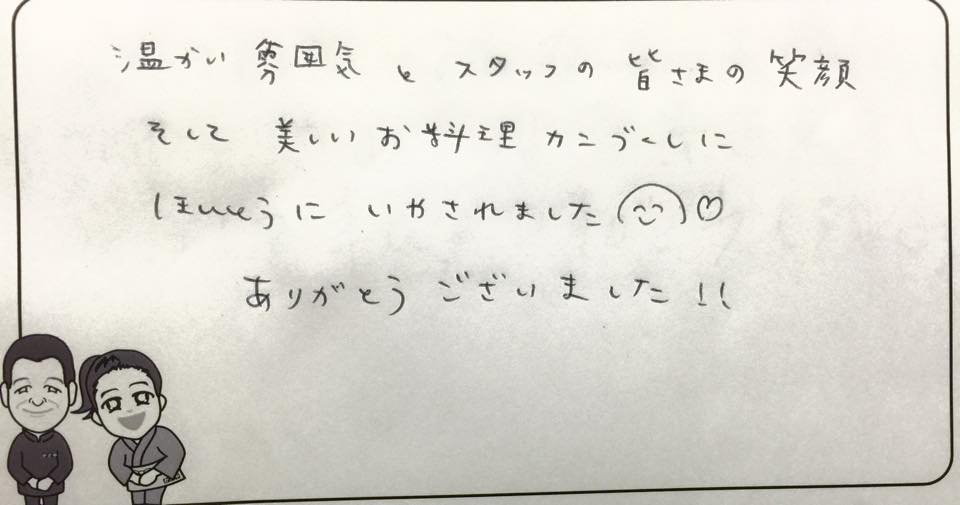 温かい 雰囲気 と スタッフの 皆さまの 笑顔
そして 美しい お料理 カニづくしに
ほんとうに いやされました(^^)♡
ありがとう ございました!!